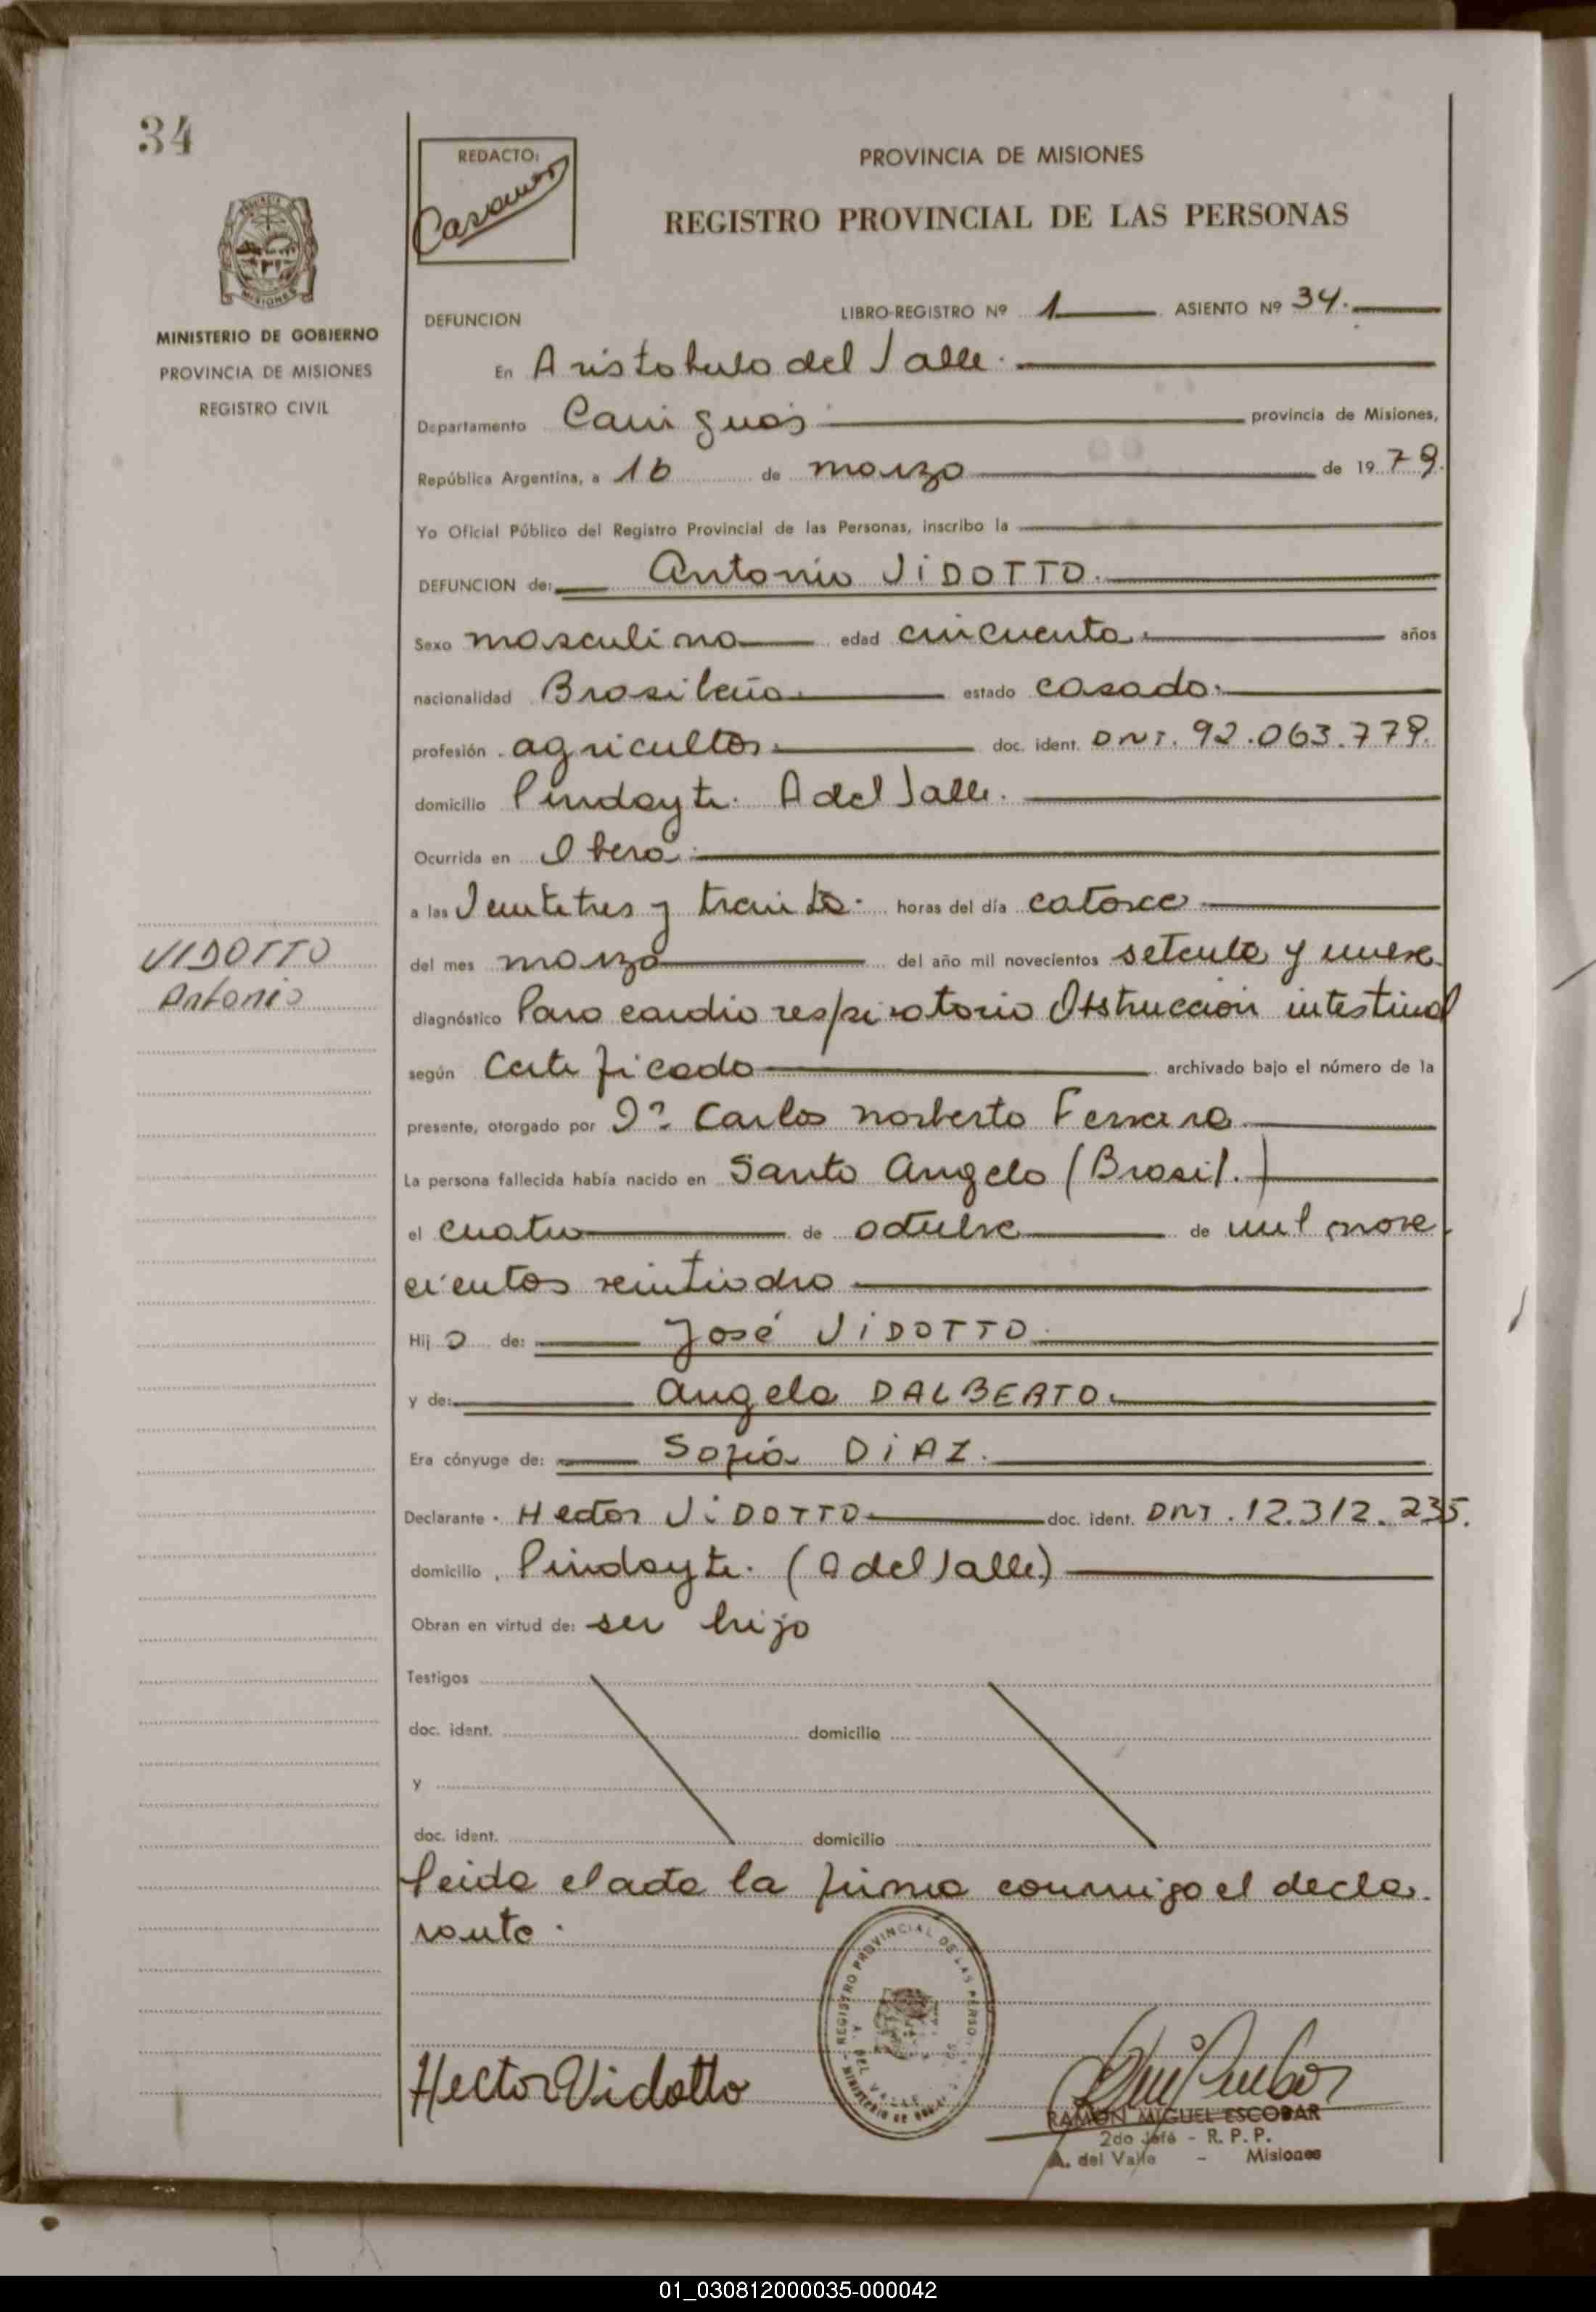 34
REDACTO:
PROVINCIA DE MISIONES
REGISTRO PROVINCIAL DE LAS PERSONAS
MISIONES
MINISTERIO DE GOBIERNO
PROVINCIA DE MISIONES
REGISTRO CIVIL
DEFUNCION LIBRO-REGISTRO Nº 1 ASIENTO Nº 34.
En Aristobulo del Valle.
Departamento Cainguás provincia de Misiones,
República Argentina, a 16 de marzo de 1979.
Yo Oficial Público del Registro Provincial de las Personas, inscribo la
DEFUNCION de: Antonio ViDOTTO.
Sexo masculino edad cincuenta. años
nacionalidad Brasileña estado casado.
profesión agricultor doc. ident. DNI. 92.063.779.
domicilio Pindayti. A del Valle.
Ocurrida en Oberá.
a las Veintitres y treinta. horas del día catorce
del mes marzo del año mil novecientos setenta y nueve
VIDOTTO
Antonio
diagnóstico Paro cardio respiratorio Obstruccion intestinal
según Certificado archivado bajo el número de la
presente, otorgado por Dr. Carlos norberto Ferreira
La persona fallecida había nacido en Santo Angelo (Brasil.)
el cuatro de octubre de mil nove
cientos veintiocho
Hijo de: José ViDOTTO
y de: Angela DALBERTO.
Era cónyuge de: Sofia DiAZ.
Declarante Hector ViDOTTO doc. ident. DNI. 12.312.235.
domicilio, Pindayti. (A del Valle)
Obran en virtud de: ser hijo
Testigos
doc. ident. domicilio
y
doc. ident. domicilio
leida el acta la firma conmigo el decla
rante.
REGISTRO PROVINCIAL DE LAS PERSO
A. DEL VALLE
MINISTERIO DE
Hector Vidotto
RAMON MIGUEL ESCOBAR
2do Jefe - R. P. P.
A. del Valle - Misiones
01_030812000035-000042